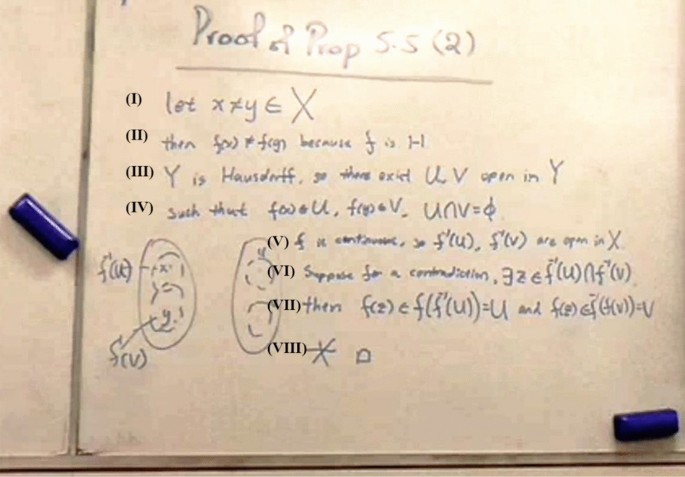 Proof of Prop 5.5 (2)
(I) let x≠y ∈ X
(II) then f(x) ≠ f(y) because f is 1-1
(III) Y is Hausdorff, so there exist U, V open in Y
(IV) such that f(x)∈U, f(y)∈V, U∩V=ϕ
(V) f is continuous, so f⁻¹(U), f⁻¹(V) are open in X.
(VI) Suppose for a contradiction, ∃z∈f⁻¹(U)∩f⁻¹(V)
(VII) then f(z)∈f(f⁻¹(U))=U and f(z)∈f(f⁻¹(V))=V
(VIII) ※ □
f⁻¹(U) x
y
f⁻¹(V)